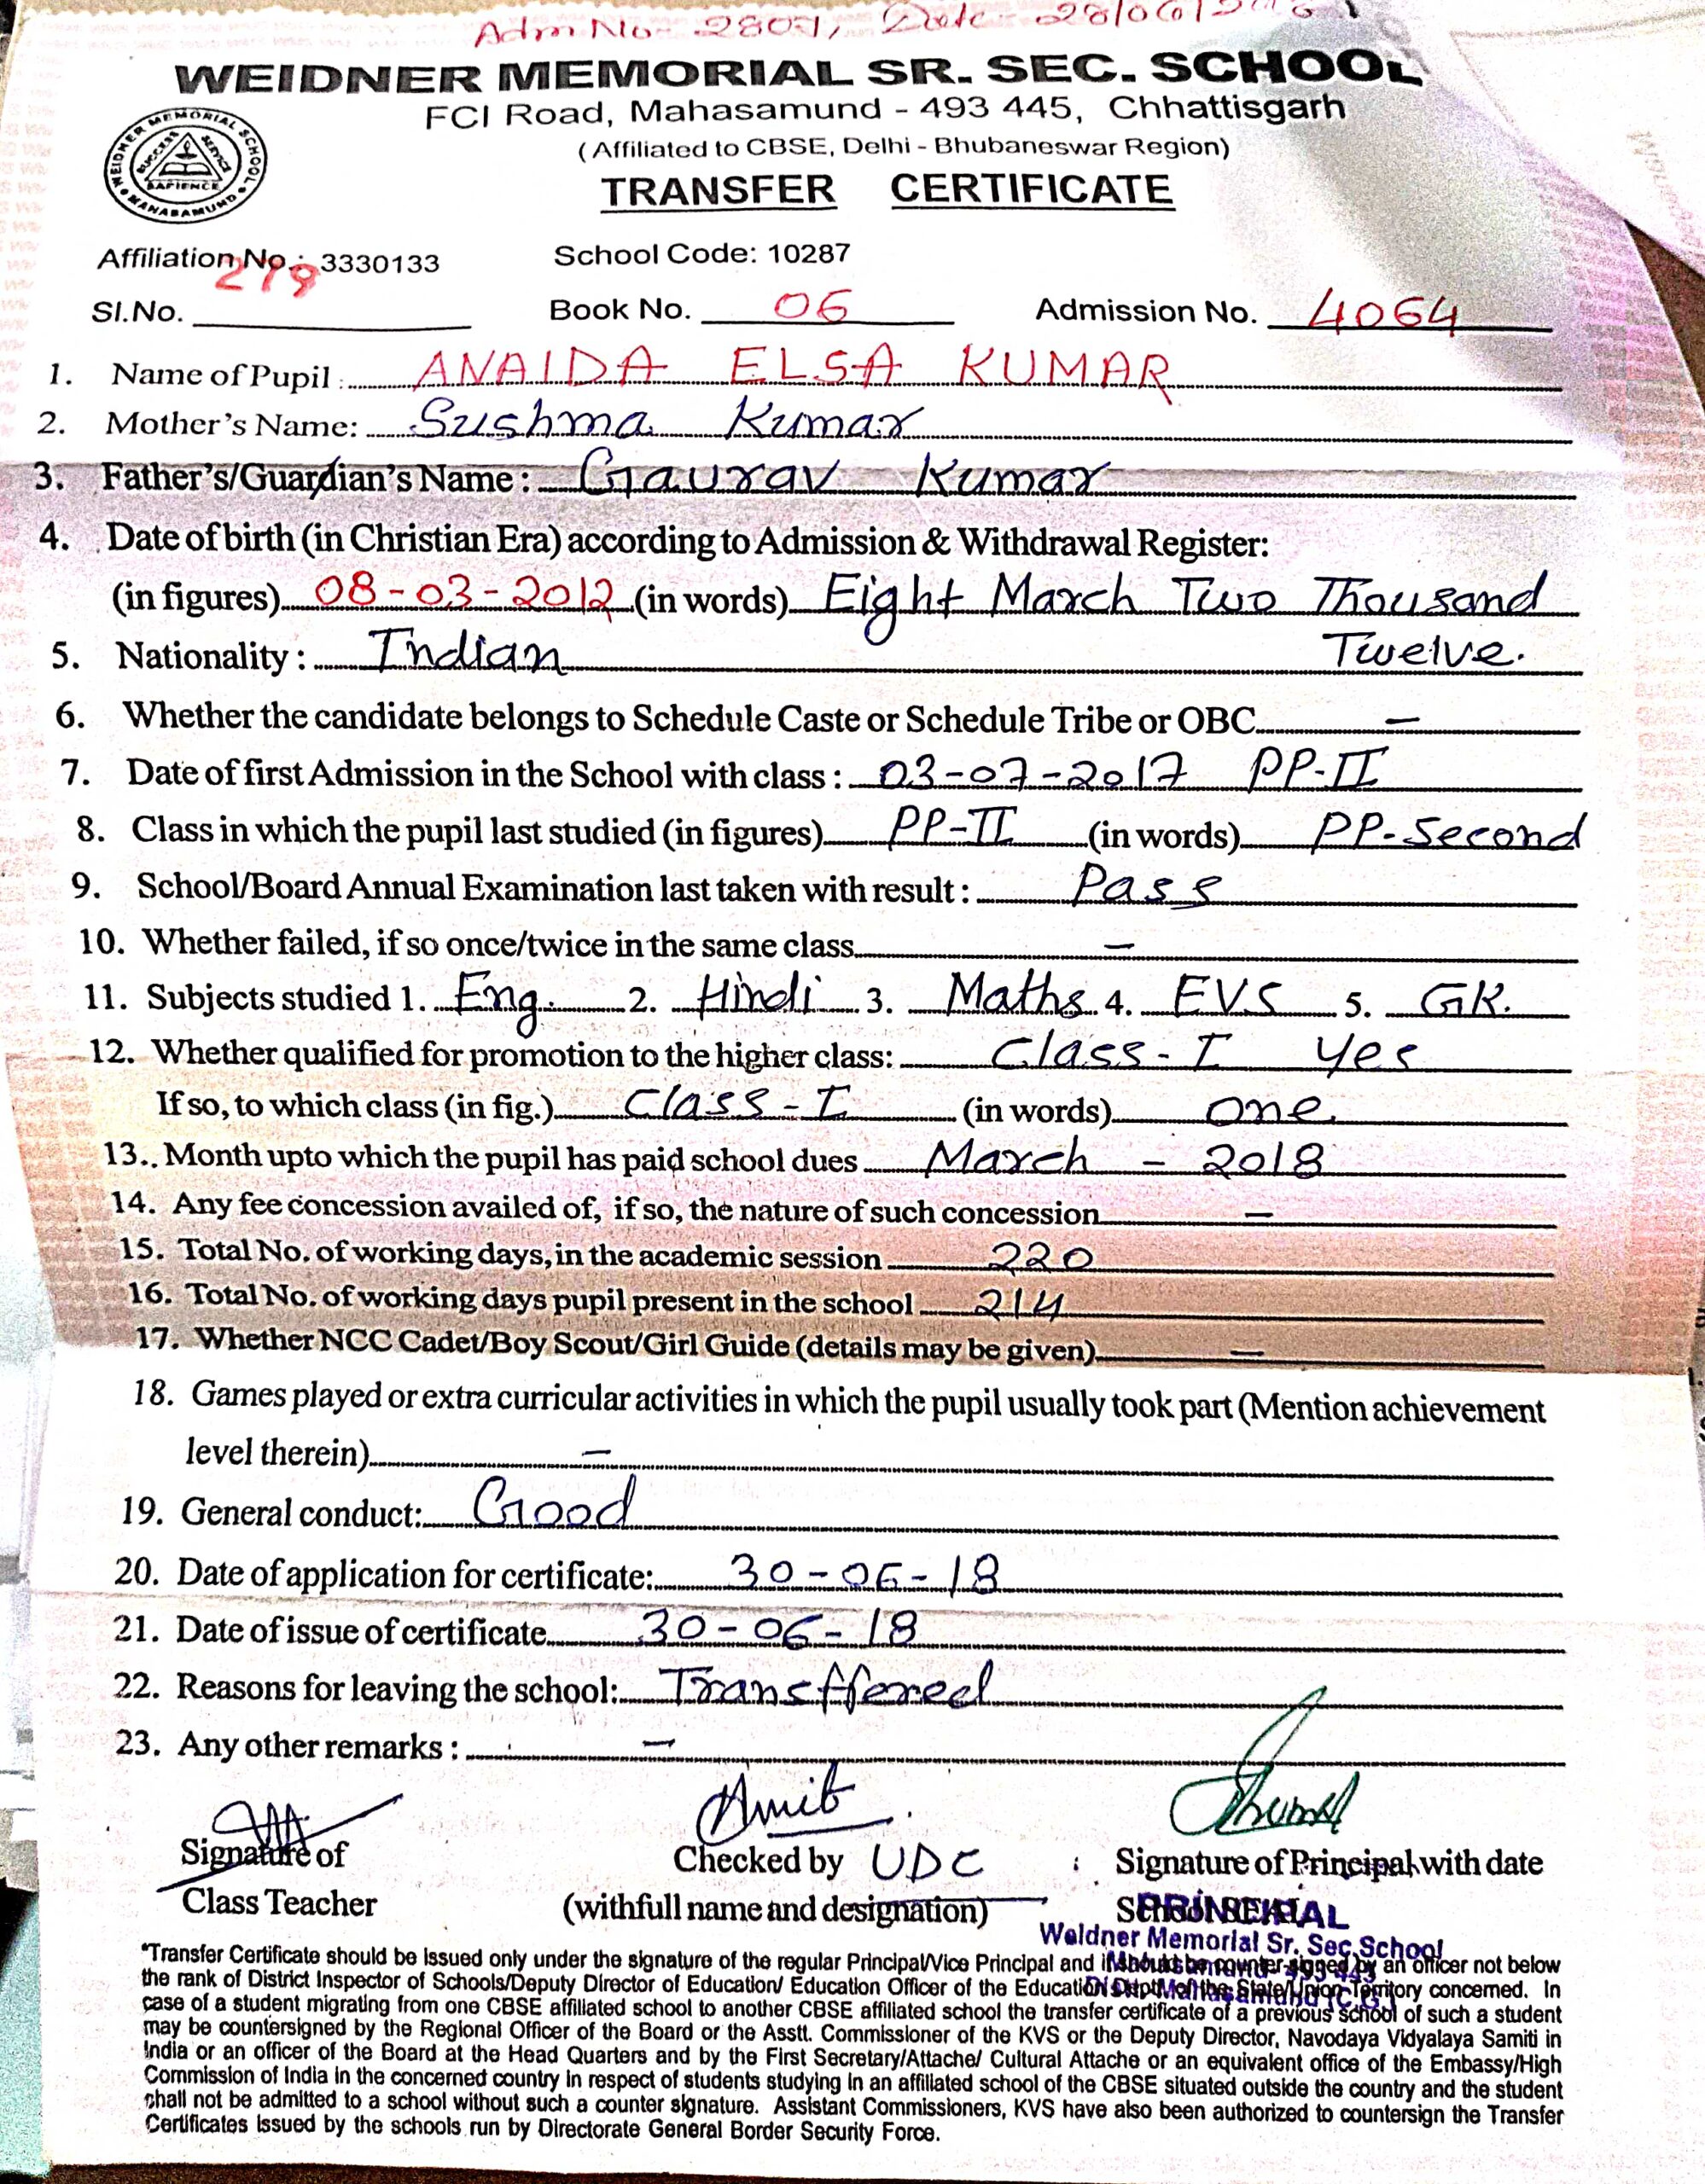 Adm No- 2807, Date - 28/06/2018
WEIDNER MEMORIAL SR. SEC. SCHOOL
FCI Road, Mahasamund - 493 445, Chhattisgarh
(Affiliated to CBSE, Delhi - Bhubaneswar Region)
WEIDNER MEMORIAL SCHOOL
SUCCESS SERVICE
SAPIENCE
MAHASAMUND
TRANSFER CERTIFICATE
Affiliation No.: 3330133 School Code: 10287
Sl.No. 279 Book No. 06 Admission No. 4064
1. Name of Pupil : ANAIDA ELSA KUMAR
2. Mother's Name: Sushma Kumar
3. Father's/Guardian's Name : Gaurav Kumar
4. Date of birth (in Christian Era) according to Admission & Withdrawal Register:
(in figures) 08-03-2012 (in words) Eight March Two Thousand
Twelve.
5. Nationality : Indian
6. Whether the candidate belongs to Schedule Caste or Schedule Tribe or OBC —
7. Date of first Admission in the School with class : 03-07-2017 PP-II
8. Class in which the pupil last studied (in figures) PP-II (in words) PP-Second
9. School/Board Annual Examination last taken with result : Pass
10. Whether failed, if so once/twice in the same class —
11. Subjects studied 1. Eng. 2. Hindi 3. Maths 4. EVS 5. GK.
12. Whether qualified for promotion to the higher class: Class-I Yes
If so, to which class (in fig.) Class-I (in words) One
13.. Month upto which the pupil has paid school dues March - 2018
14. Any fee concession availed of, if so, the nature of such concession —
15. Total No. of working days, in the academic session 220
16. Total No. of working days pupil present in the school 214
17. Whether NCC Cadet/Boy Scout/Girl Guide (details may be given) —
18. Games played or extra curricular activities in which the pupil usually took part (Mention achievement
level therein) —
19. General conduct: Good
20. Date of application for certificate: 30-06-18
21. Date of issue of certificate 30-06-18
22. Reasons for leaving the school: Transffered
23. Any other remarks : —
Amit
Signature of Checked by UDC : Signature of Principal with date
Class Teacher (withfull name and designation) School SEAL
PRINCIPAL
Weidner Memorial Sr. Sec. School
*Transfer Certificate should be Issued only under the signature of the regular Principal/Vice Principal and it should be counter-signed by an officer not below
the rank of District Inspector of Schools/Deputy Director of Education/ Education Officer of the Education Deptt. of the State/Union Territory concerned. In
case of a student migrating from one CBSE affiliated school to another CBSE affiliated school the transfer certificate of a previous school of such a student
may be countersigned by the Regional Officer of the Board or the Asstt. Commissioner of the KVS or the Deputy Director, Navodaya Vidyalaya Samiti in
India or an officer of the Board at the Head Quarters and by the First Secretary/Attache/ Cultural Attache or an equivalent office of the Embassy/High
Commission of India in the concerned country in respect of students studying in an affiliated school of the CBSE situated outside the country and the student
shall not be admitted to a school without such a counter signature. Assistant Commissioners, KVS have also been authorized to countersign the Transfer
Certificates issued by the schools run by Directorate General Border Security Force.